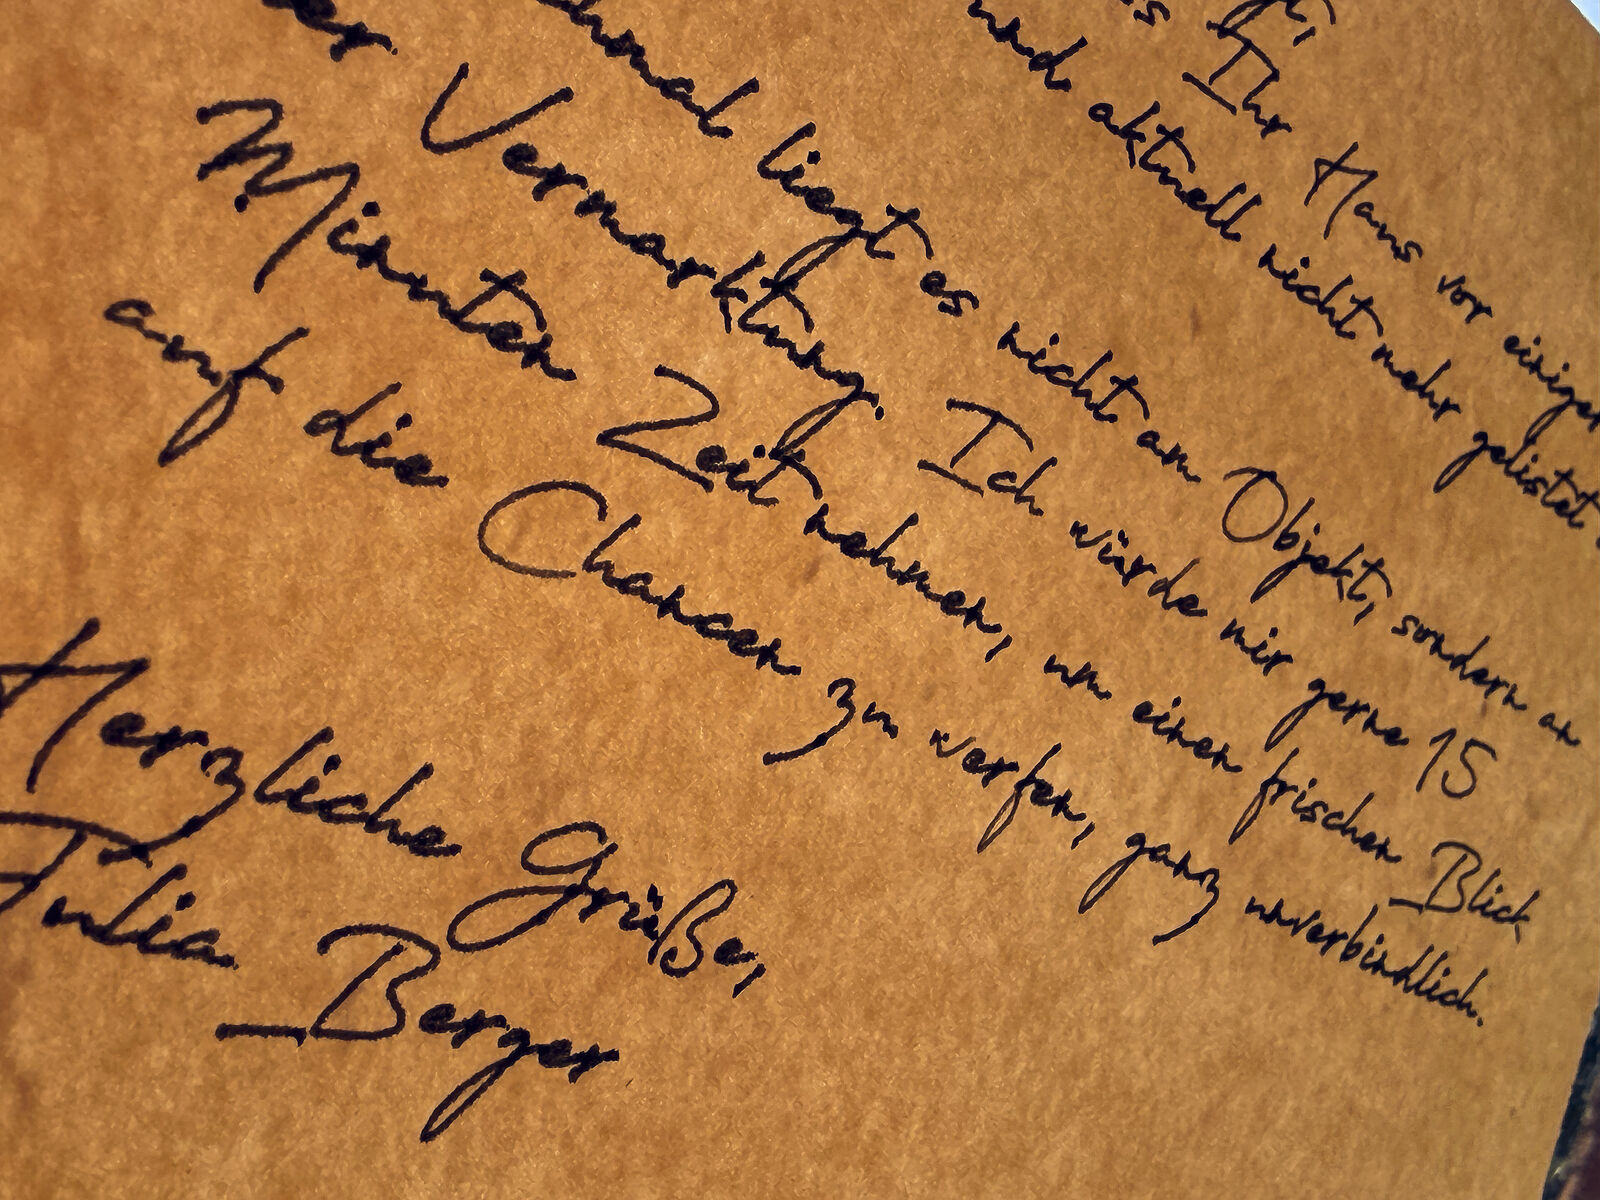 Ihr Haus vor einiger
und aktuell nicht mehr gelistet
chmal liegt es nicht am Objekt, sondern an
er Vermarktung. Ich würde mir gerne 15
Minuten Zeit nehmen, um einen frischen Blick
auf die Chancen zu werfen, ganz unverbindlich.
Herzliche Grüße,
Julia Berger